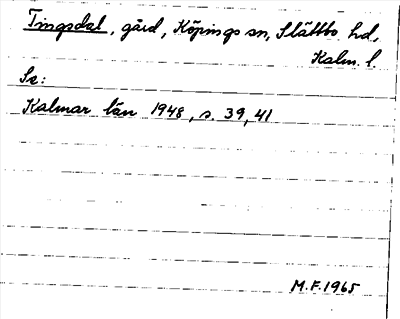 Tingsdal, gård, Köpings sn, Slättbo hd,
Kalm. l.
Se:
Kalmar län 1948, s. 39, 41
M.F. 1965